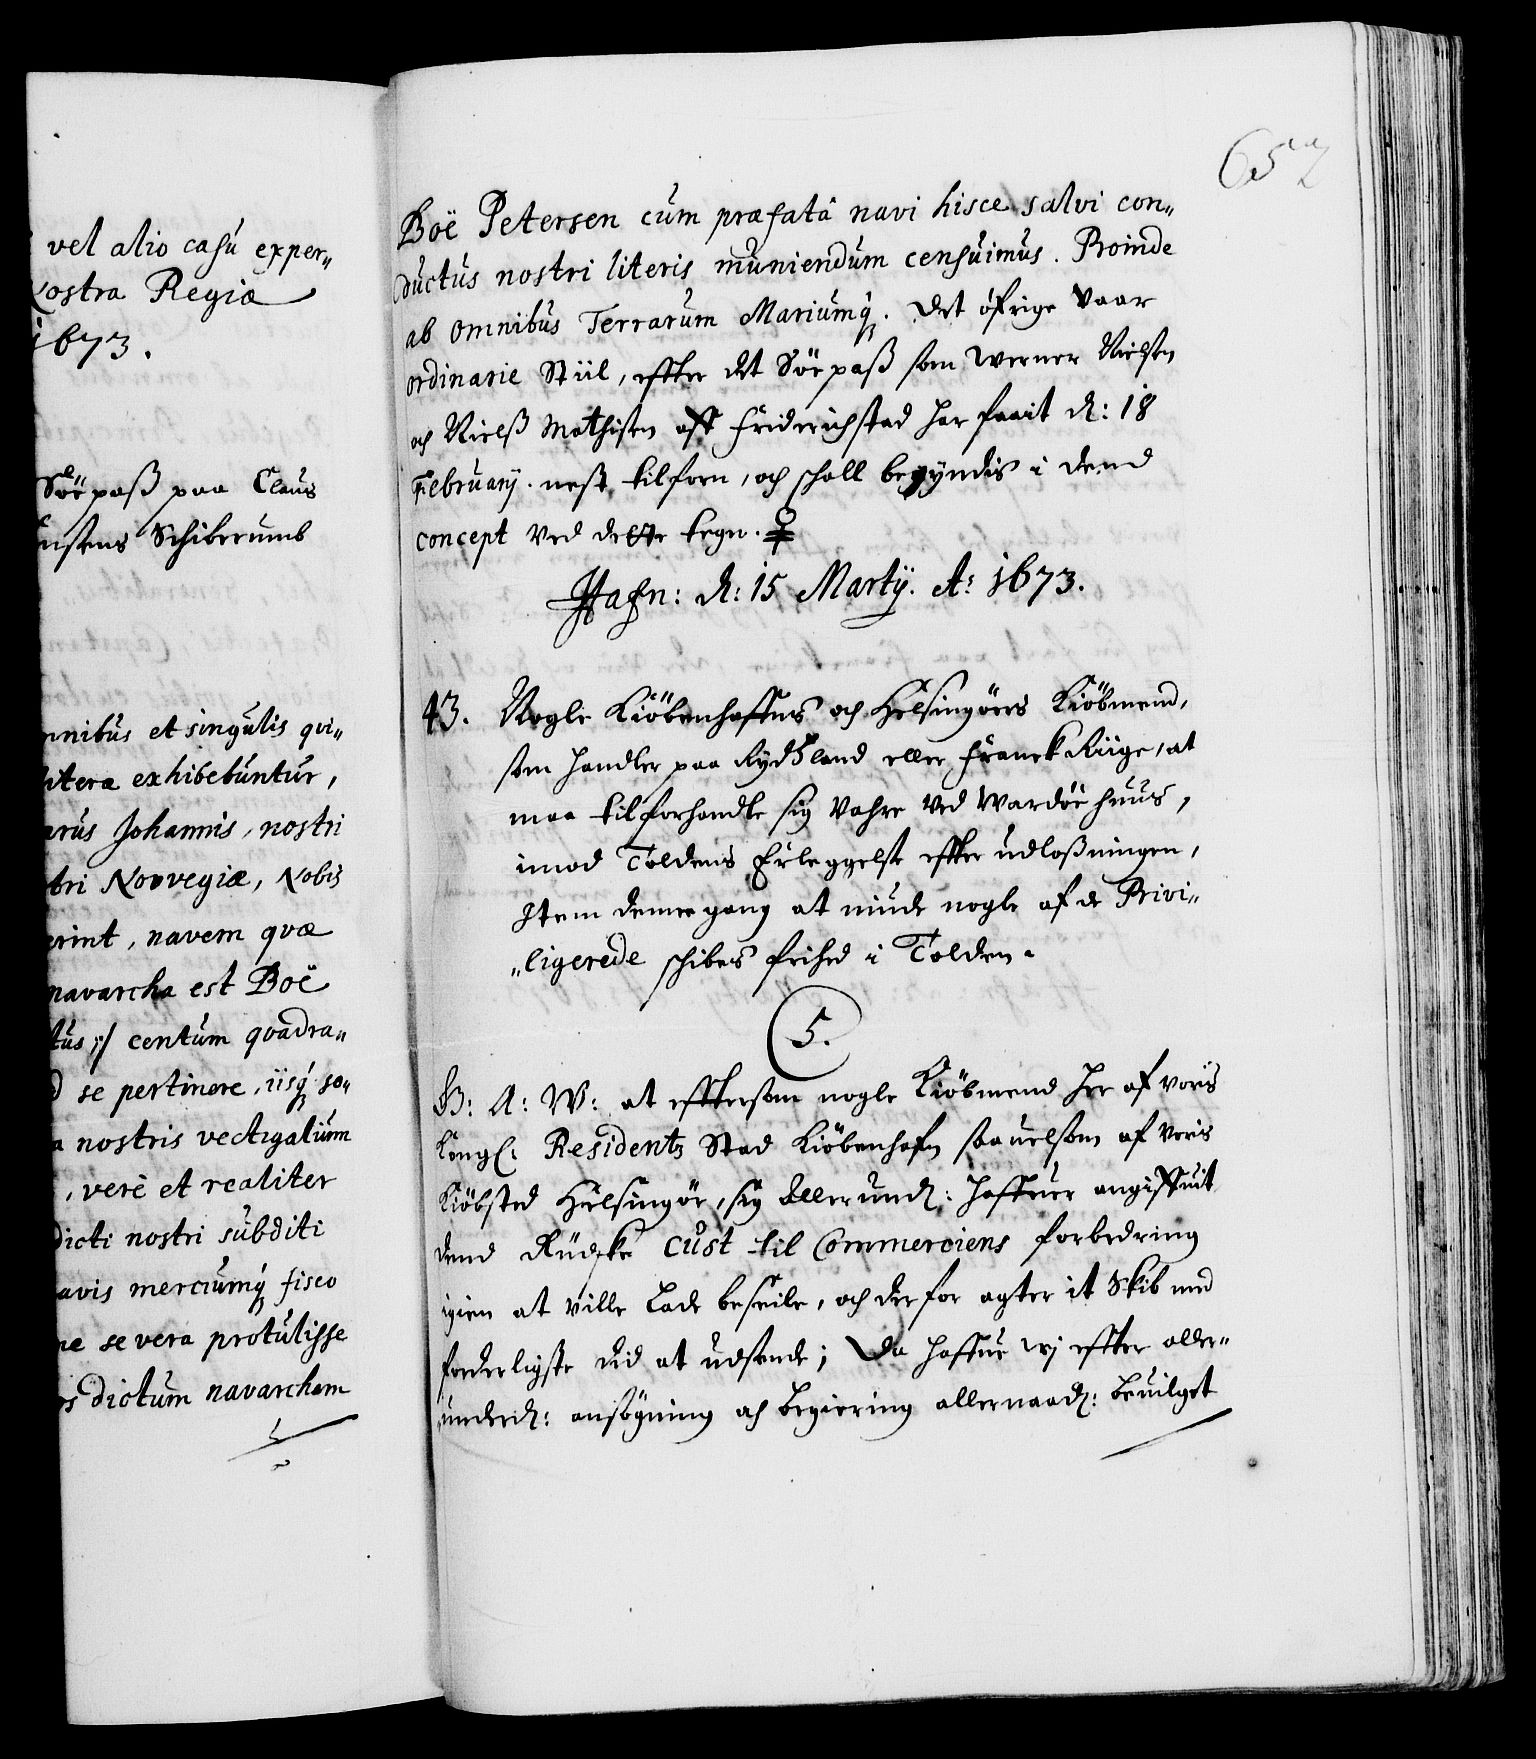 vel alio casu exper„
Nostra Regia
1673.
Söepaß paa Claus
Schiberumb
omnibus et singulis qvi„
litera exhibebuntur,
Johannis, nostri
Norvegiæ, Nobis
navem qvæ
navarcha est Boë
centum qvadra„
se pertinere, iisq so„
nostris vectigalium
, verè et realiter
dicti nostri subditi
navis merciumq fisco
se vera protulisse
dictum navarcham
657
Boë Petersen cum præfatâ navi hisce salvi con„
ductus nostri literis muniendum censuimus. Proinde
ab omnibus Terrarum Mariumq. det öfrige vaar
ordinarie Stiil, effter det Söepaß som Werner Nielsen
och Nielß Mathisen aff Friderichstad har faait d: 18
Februarij nest tilforn, och schall begyndis i dend
concept ved dette tegn. ♀
Hafn: d: 15 Martij. Aº 1673.
43. Nogle Kiöbenhaffns och Helsingörs Kiöbmend,
som handler paa Rydsland eller Franck Riige, at
maa tilforhandle sig Vahre ved Wardöehuus,
imod Toldens Erleggelse effter udloßningen,
Item denne gang at niude nogle af de Privi„
„ligerede schibes frihed i Tolden.
5.
G: A: W: at efftersom nogle Kiöbmend her af voris
Kongl: Residentz Stad Kiöbenhafn saauelsom af Voris
Kiöbsted Helsingör, sig Allerund: haffuer angiffuit
dend Rüdske Cust til Commerciens forbedring
igien at ville Lade beseile, och derfor agter it Skib med
forderligste did at udsende; Da haffue Wj effter aller„
underd: ansögning och begiering allernaad: beuilget